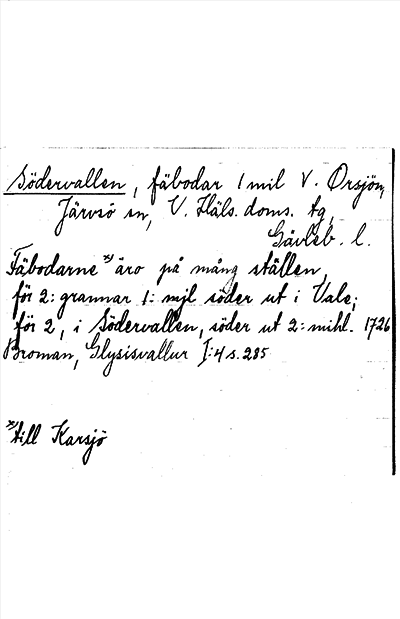 Södervallen, fäbodar 1 mil V. Orsjön,
Järvsö sn, V. Häls. doms. tg,
Gävleb. l.
Fäbodarne x) äro på mång ställen,
för 2: grannar 1: mjl söder ut i Vale;
för 2, i Södervallen, söder ut 2: mihl. 1726
Broman, Glysisvallur I:4 s. 285
x) till Karsjö